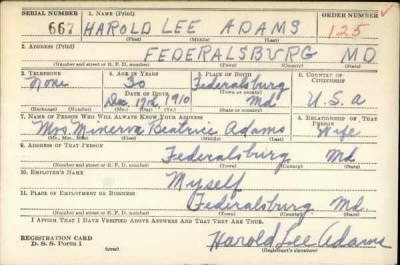 SERIAL NUMBER 1. NAME (Print) ORDER NUMBER
667 HAROLD LEE ADAMS 125
(First) (Middle) (Last)
2. ADDRESS (Print)
FEDERALSBURG MD
(Number and street or R. F. D. number) (Town) (County) (State)
3. TELEPHONE 4. AGE IN YEARS 5. PLACE OF BIRTH 6. COUNTRY OF CITIZENSHIP
None 30 Federalsburg
DATE OF BIRTH (Town or county)
Dec 19th 1910 Md U.S.A
(Exchange) (Number) (Mo.) (Day) (Yr.) (State or country)
7. NAME OF PERSON WHO WILL ALWAYS KNOW YOUR ADDRESS 8. RELATIONSHIP OF THAT PERSON
Mrs. Minerva Beatrice Adams Wife
(Mr., Mrs., Miss) (First) (Middle) (Last)
9. ADDRESS OF THAT PERSON
Federalsburg Md
(Number and street or R. F. D. number) (Town) (County) (State)
10. EMPLOYER'S NAME
Myself
11. PLACE OF EMPLOYMENT OR BUSINESS
Federalsburg Md.
(Number and street or R. F. D. number) (Town) (County) (State)
I AFFIRM THAT I HAVE VERIFIED ABOVE ANSWERS AND THAT THEY ARE TRUE.
REGISTRATION CARD
D. S. S. Form 1 Harold Lee Adams
(over) (Registrant's signature)